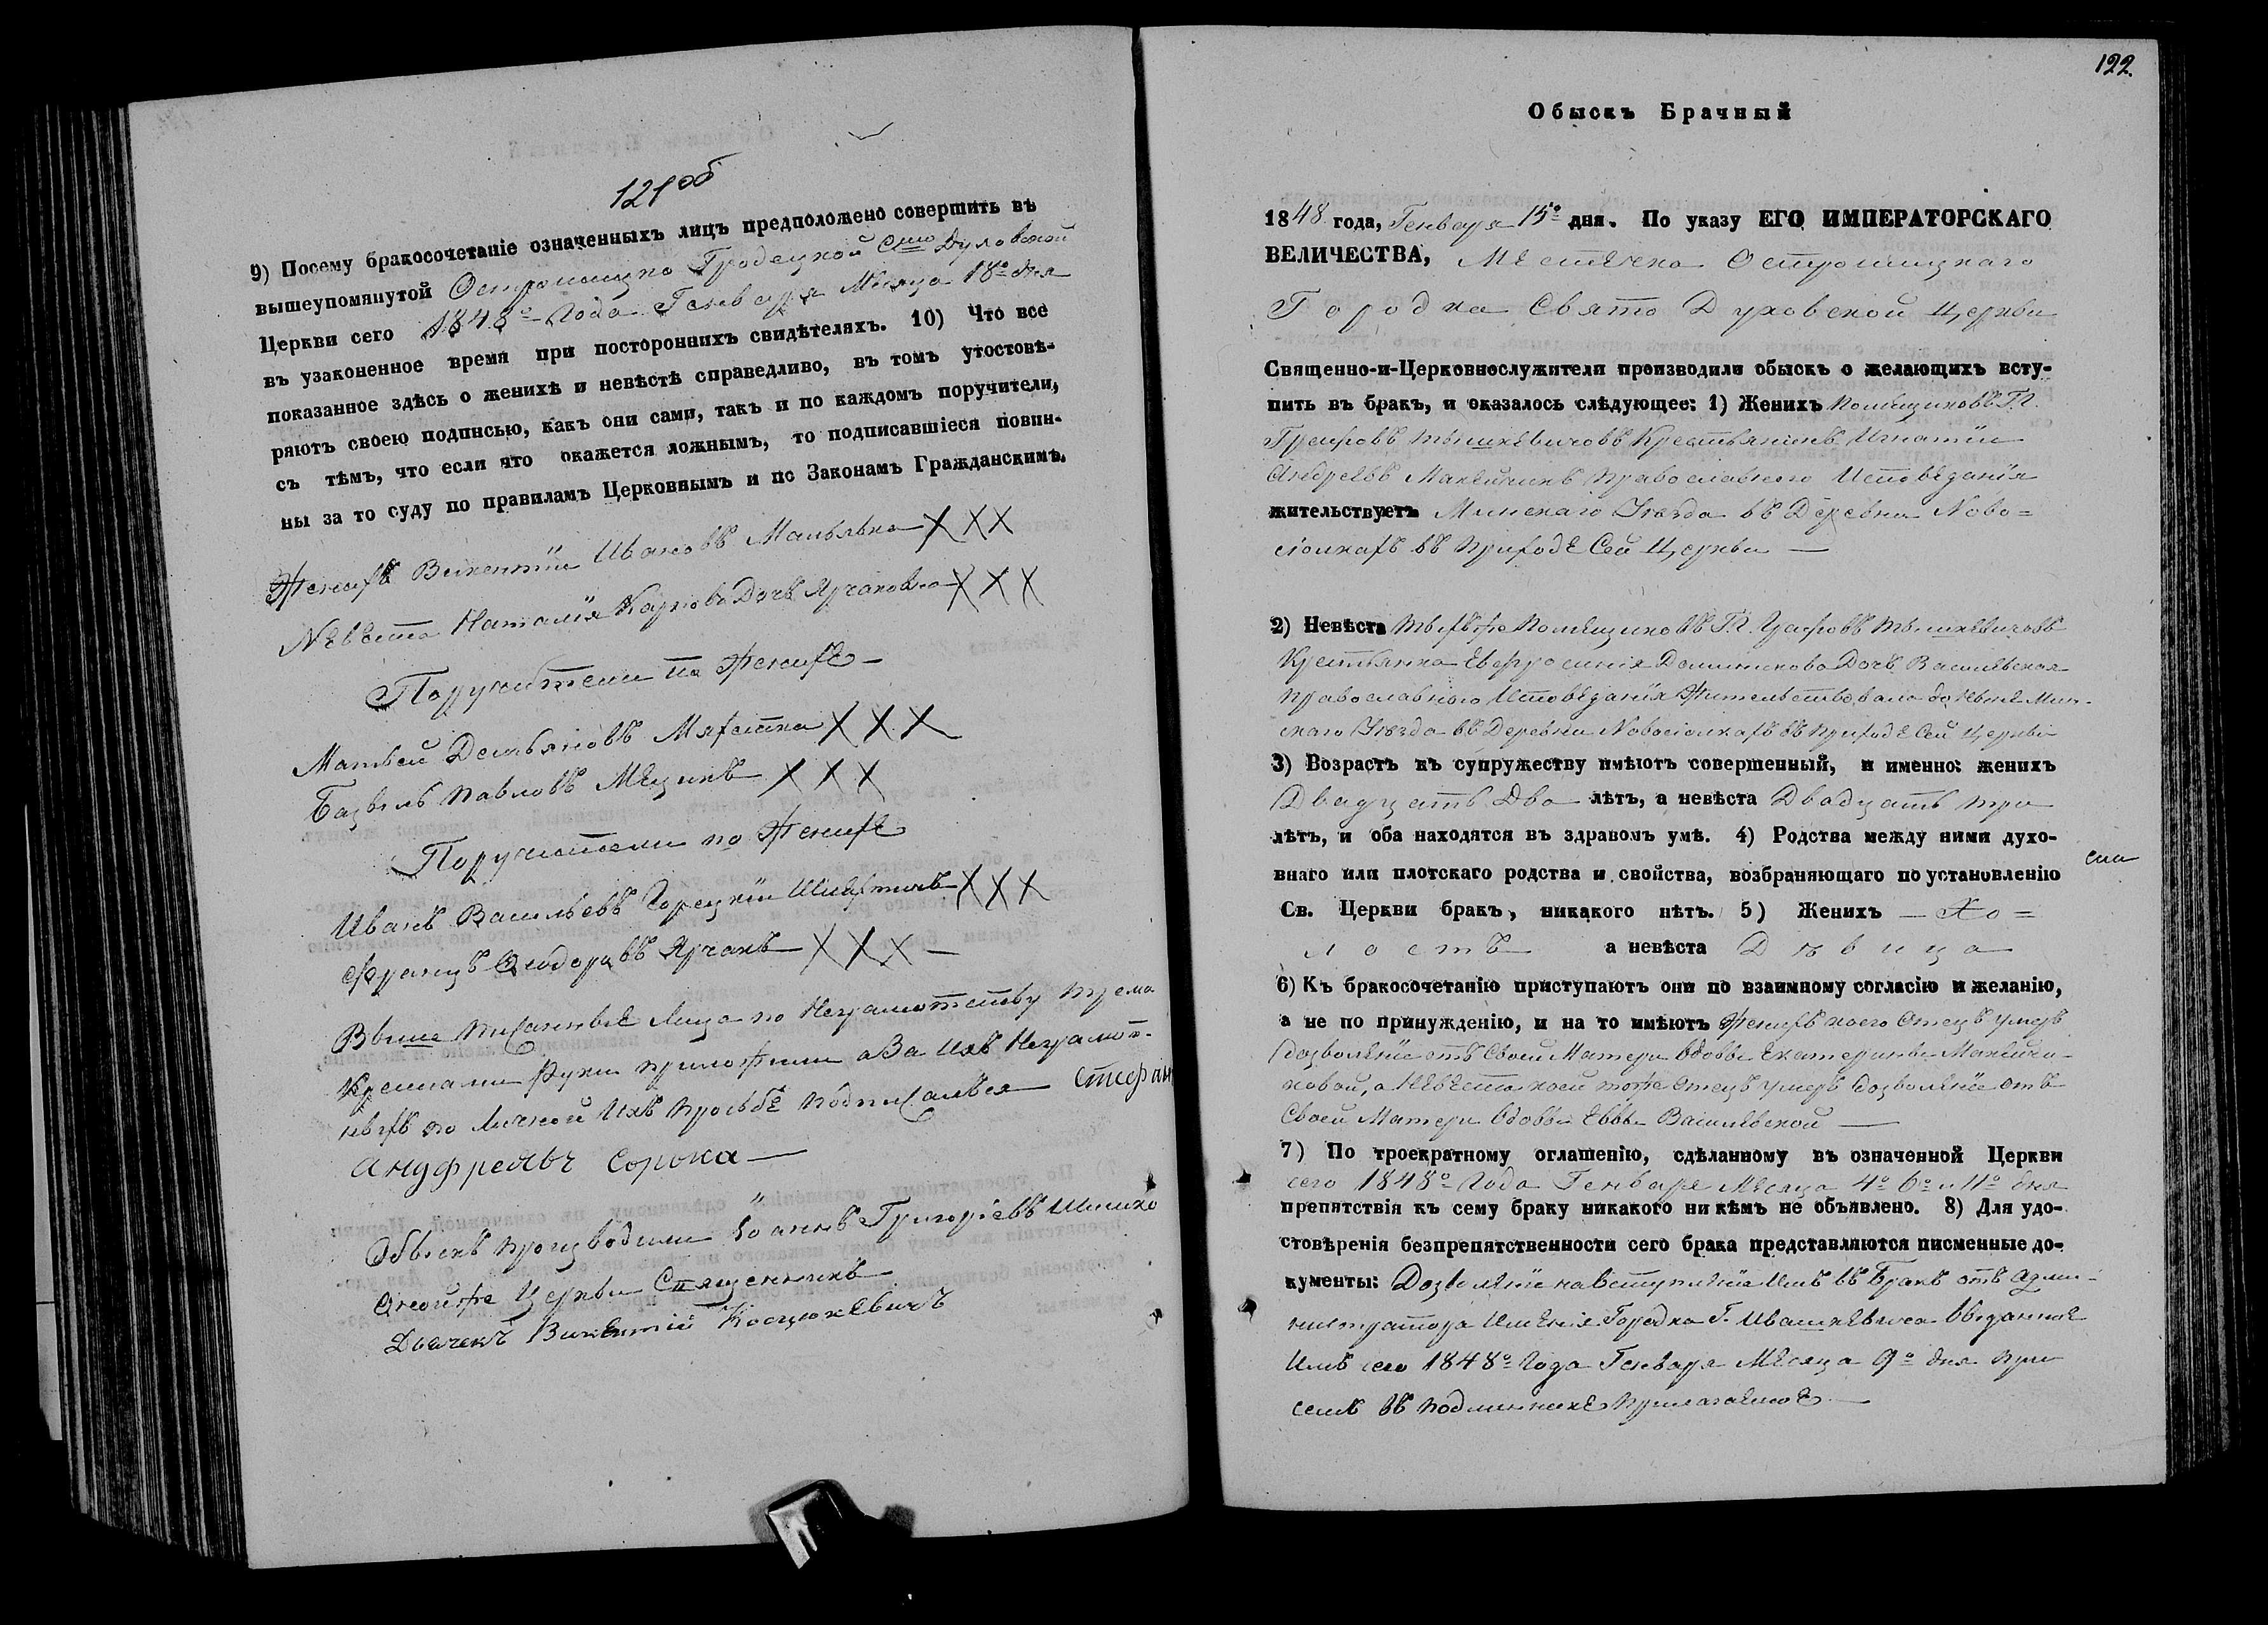 121об
9) Посему бракосочетаніе означенныхъ лицъ предположено совершить въ
вышеупомянутой Острошицко Гродецкой Сто Духовской
Церкви сего 1848о года Генваря Месяца 18о дня
въ узаконенное время при постороннихъ свидѣтеляхъ. 10) Что все
показанное здѣсь о женихѣ и невѣстѣ справедливо, въ томъ утостовѣ-
ряютъ своею подписью, какъ они сами, такъ и по каждомъ поручители,
съ тѣмъ, что если что окажется ложнымъ, то подписавшіеся повин-
ны за то суду по правиламъ Церковнымъ и по Законамъ Гражданскимъ.
Женихъ Викентій Ивановъ Малявка XXX
Невеста Наталія Карпова Дочь Ярчаковна XXX
Поручители по Женихе
Матвей Демьяновъ XXX
Павловъ XXX
Поручители по Женихе
Иванъ Васильевъ XXX
Францъ Ѳеодоровъ Ярчакъ XXX
Выше писанные Лица по Неграмотству трема
Крестами Руки приложили а За ихъ Неграмот-
ныхъ по Личной Ихъ просьбе подписался Стефан
Ануфреявъ Сорока
Обыскъ производили Іоаннъ Григоріевъ
Оной же Церкви Священникъ
Дьячекъ Викентій Косцюкевичъ
122.
Обыскъ Брачный
1848 года, Генваря 15о дня. По указу ЕГО ИМПЕРАТОРСКАГО
ВЕЛИЧЕСТВА, Местечка Острошицкаго
Городка Свято Духовской Церкви
Священно-и-Церковнослужители производили обыскъ о желающихъ всту-
пить въ бракъ, и оказалось слѣдующее: 1) Женихъ Помещиковъ Г.Г.
Графовъ Тышкевичовъ Крестьянинъ Игнатій
Андреевъ Макейчикъ Православного Исповеданія
жительствуетъ Минскаго Уезда въ Деревни Ново=
сіолкахъ въ Приходе Сей Церкви
2) Невѣста техъ же Помещиковъ Г.Г. Графовъ Тышкевичовъ
Крестьянка Евфросинія Доминикова Дочь Василевская
Православного Исповеданія Жительствовала до Ныне Мин-
скаго Уезда въ Деревни Новосіолкахъ въ Приходе Сей Церкви
3) Возрастъ къ супружеству имѣютъ совершенный, и именно: женихъ
Двадцать Два лѣтъ, а невѣста Двадцать три
лѣтъ, и оба находятся въ здравомъ умѣ. 4) Родства между ними духо-
внаго или плотскаго родства и свойства, возбраняющаго по установленію
Св. Церкви бракъ, никакого нѣтъ. 5) Женихъ Хо=
лостъ а невѣста Девица
6) Къ бракосочетанію приступаютъ они по взаимному согласію и желанію,
а не по принужденію, и на то имѣютъ Женихъ коего Отецъ умеръ
дозволеніе отъ Своей Матери вдовы Екатерины Макейчи-
ковой, а Невеста коей тоже отецъ умеръ дозволеніе отъ
Своей Матери Вдовы Еввы Василевской
7) По троекратному оглашенію, сдѣланному въ означенной Церкви
сего 1848о года Генваря Месяца 4о 6о и 11о дня
препятствія къ сему браку никакого ни кѣмъ не объявлено. 8) Для удо-
стовѣренія безпрепятственности сего брака представляются писменные до-
кументы: Дозволеніе на Вступленіе Имъ въ Бракъ отъ Адми-
нистратора Именія Городка Г. Ивашкевича Выданное
Имъ сего 1848о года Генваря Месяца 9о дня при
семъ въ подлиннике прилагаемое